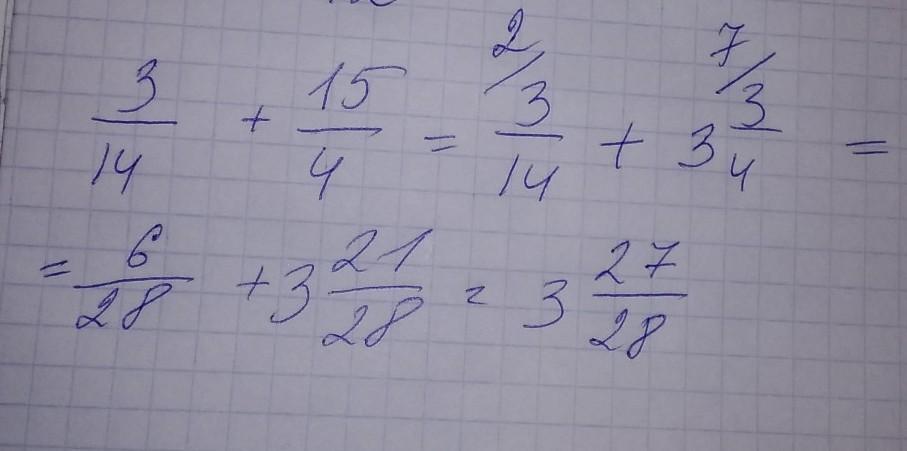 3/14 + 15/4 = 2/ 3/14 + 7/ 3 3/4 =
= 6/28 + 3 21/28 = 3 27/28